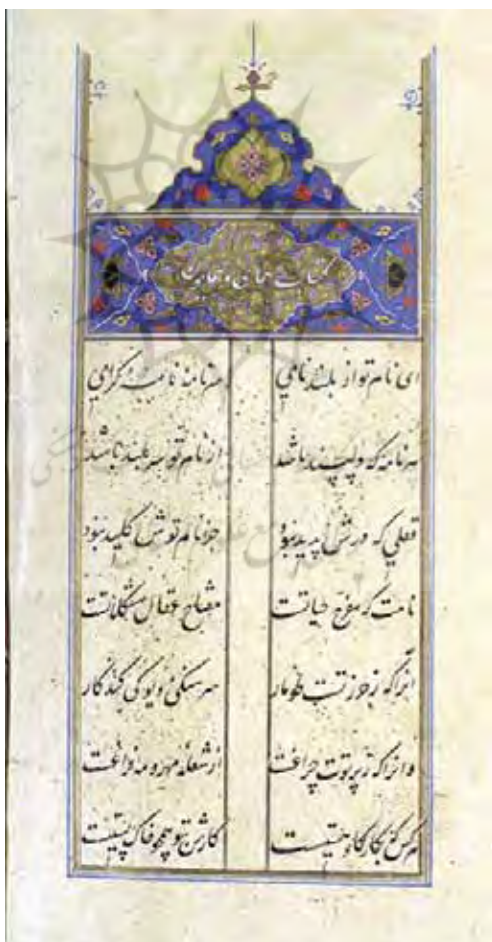 کتاب
ای نام تو از بلند نامی سرنامهٔ نامه گرامی
هر نامه که دلپسند باشد از نام تو سربلند باشد
قفلی که درش پدید نبود جز نام تواش کلید نبود
نامت که مفرح حیاتست مفتاح عقال مشکلاتست
آنرا که ز حرز تست طومار هر و دیو کی کند کار
وانرا که ز پرتوت چراغست از شعله مهر و مه فراغست
هر کس که بکارگاه کارش بتو همچو خاک